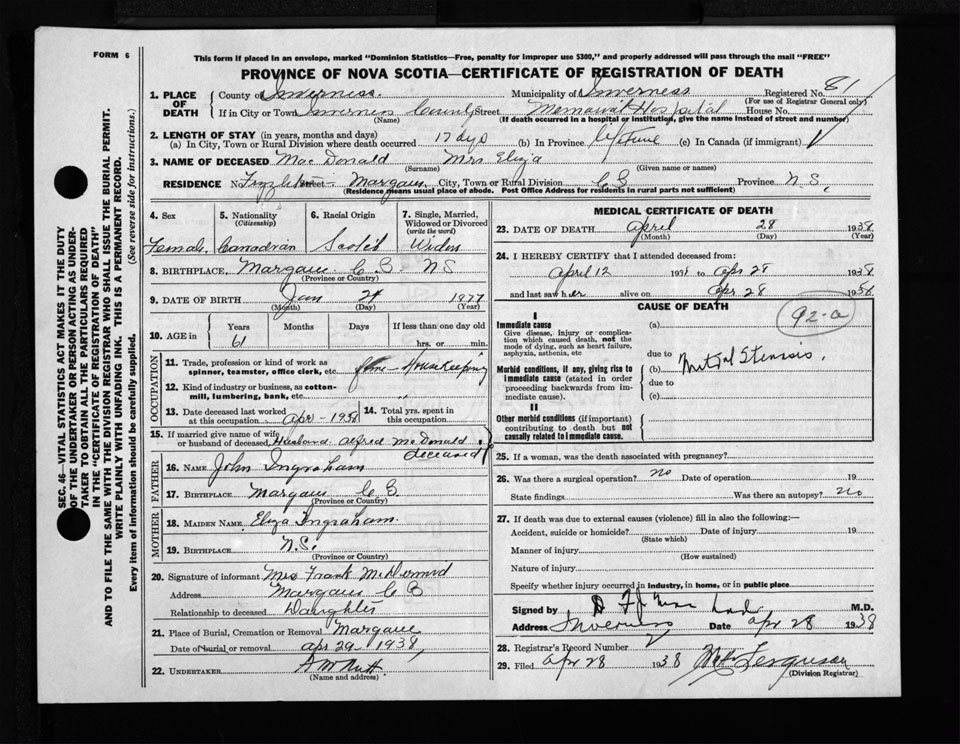 FORM 6
This form if placed in an envelope, marked "Dominion Statistics—Free, penalty for improper use $300," and properly addressed will pass through the mail "FREE"
PROVINCE OF NOVA SCOTIA—CERTIFICATE OF REGISTRATION OF DEATH
SEC. 46—VITAL STATISTICS ACT MAKES IT THE DUTY
OF THE UNDERTAKER OR PERSON ACTING AS UNDER-
TAKER TO OBTAIN ALL THE PARTICULARS REQUIRED
IN THE "CERTIFICATE OF REGISTRATION OF DEATH"
AND TO FILE THE SAME WITH THE DIVISION REGISTRAR WHO SHALL ISSUE THE BURIAL PERMIT.
WRITE PLAINLY WITH UNFADING INK. THIS IS A PERMANENT RECORD.
Every item of information should be carefully supplied. (See reverse side for instructions.)
1. PLACE OF DEATH County of Inverness Municipality of Inverness Registered No. 81
(For use of Registrar General only)
If in City or Town Inverness County Street Memorial Hospital House No.
(Name) (If death occurred in a hospital or institution, give the name instead of street and number)
2. LENGTH OF STAY (in years, months and days)
(a) In City, Town or Rural Division where death occurred 17 dys (b) In Province life time (c) In Canada (if immigrant)
3. NAME OF DECEASED MacDonald Mrs Eliza
(Surname) (Given name or names)
RESIDENCE No. Street Margaree City, Town or Rural Division C B Province N S,
(Residence means usual place of abode. Post Office Address for residents in rural parts not sufficient)
4. Sex
Female
5. Nationality
(Citizenship)
Canadian
6. Racial Origin
Scotch
7. Single, Married,
Widowed or Divorced
(write the word)
Widow
8. BIRTHPLACE, Margaree C B. N S
(Province or Country)
9. DATE OF BIRTH Jan 24 1877
(Month) (Day) (Year)
10. AGE in Years Months Days If less than one day
61 hrs. or min.
OCCUPATION
11. Trade, profession or kind of work as
spinner, teamster, office clerk, etc. Housekeeping
12. Kind of industry or business, as cotton-
mill, lumbering, bank, etc. "
13. Date deceased last worked
at this occupation Apr - 1938
14. Total yrs. spent in
this occupation
15. If married give name of wife
or husband of deceased, Husband Alfred McDonald
deceased
FATHER
16. NAME John Ingraham
17. BIRTHPLACE Margaree C B.
(Province or Country)
MOTHER
18. MAIDEN NAME Eliza Ingraham
19. BIRTHPLACE N.S.
(Province or Country)
20. Signature of informant Mrs Frank McDermid
Address Margaree C B
Relationship to deceased Daughter
21. Place of Burial, Cremation or Removal Margaree
Date of burial or removal Apr 29 1938
22. UNDERTAKER
(Name and address)
MEDICAL CERTIFICATE OF DEATH
23. DATE OF DEATH April 28 1938
(Month) (Day) (Year)
24. I HEREBY CERTIFY that I attended deceased from:
April 12 1938 to Apr 28 1938
and last saw her alive on Apr 28 1938
CAUSE OF DEATH
92-a
I
Immediate cause
Give disease, injury or complica-
tion which caused death, not the
mode of dying, such as heart failure,
asphyxia, asthenia, etc
(a)
due to
Morbid conditions, if any, giving rise to
immediate cause (stated in order
proceeding backwards from im-
mediate cause).
(b) Mitral Stenosis,
due to
(c)
II
Other morbid conditions (if important)
contributing to death but not
causally related to immediate cause.
25. If a woman, was the death associated with pregnancy?
26. Was there a surgical operation? no Date of operation 19
State findings Was there an autopsy? no
27. If death was due to external causes (violence) fill in also the following:—
Accident, suicide or homicide? Date of injury 19
(State which)
Manner of injury
(How sustained)
Nature of injury
Specify whether injury occurred in industry, in home, or in public place
Signed by M.D.
Address Inverness Date Apr 28 1938
28. Registrar's Record Number
29. Filed Apr 28 1938 Ferguson
(Division Registrar)